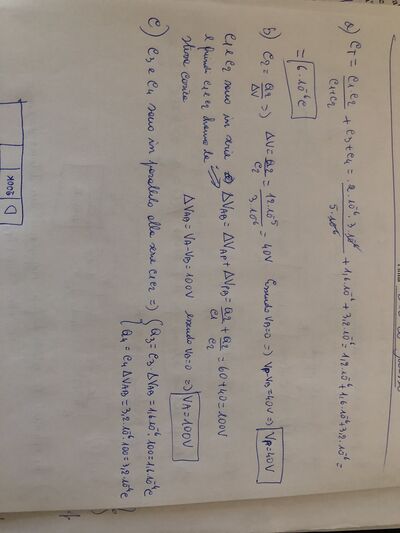 a) CT = C1C2/C1+C2 + C3+C4 = 2·10⁻⁶·3·10⁻⁶/5·10⁻⁶ + 1,6·10⁻⁶ + 3,2·10⁻⁶ = 1,2·10⁻⁶+1,6·10⁻⁶+3,2·10⁻⁶ =
= 6·10⁻⁶C
b) C2 = Q2/ΔV => ΔV = Q2/C2 = 12·10⁻⁵/3·10⁻⁶ = 40V Essendo VB=0 => VP-VB=40V => VP=40V
C1 e C2 sono in serie => ΔVAB = ΔVAP + ΔVPB = Q2/C1 + Q2/C2 = 60+40=100V
e quindi C1 e C2 hanno la
stessa carica ΔVAB = VA-VB = 100V essendo VB=0 => VA=100V
c) C3 e C4 sono in parallelo alla serie C1C2 => { Q3 = C3·ΔVAB = 1,6·10⁻⁶·100=1,6·10⁻⁴C
{ Q4 = C4 ΔVAB = 3,2·10⁻⁶·100=3,2·10⁻⁴C